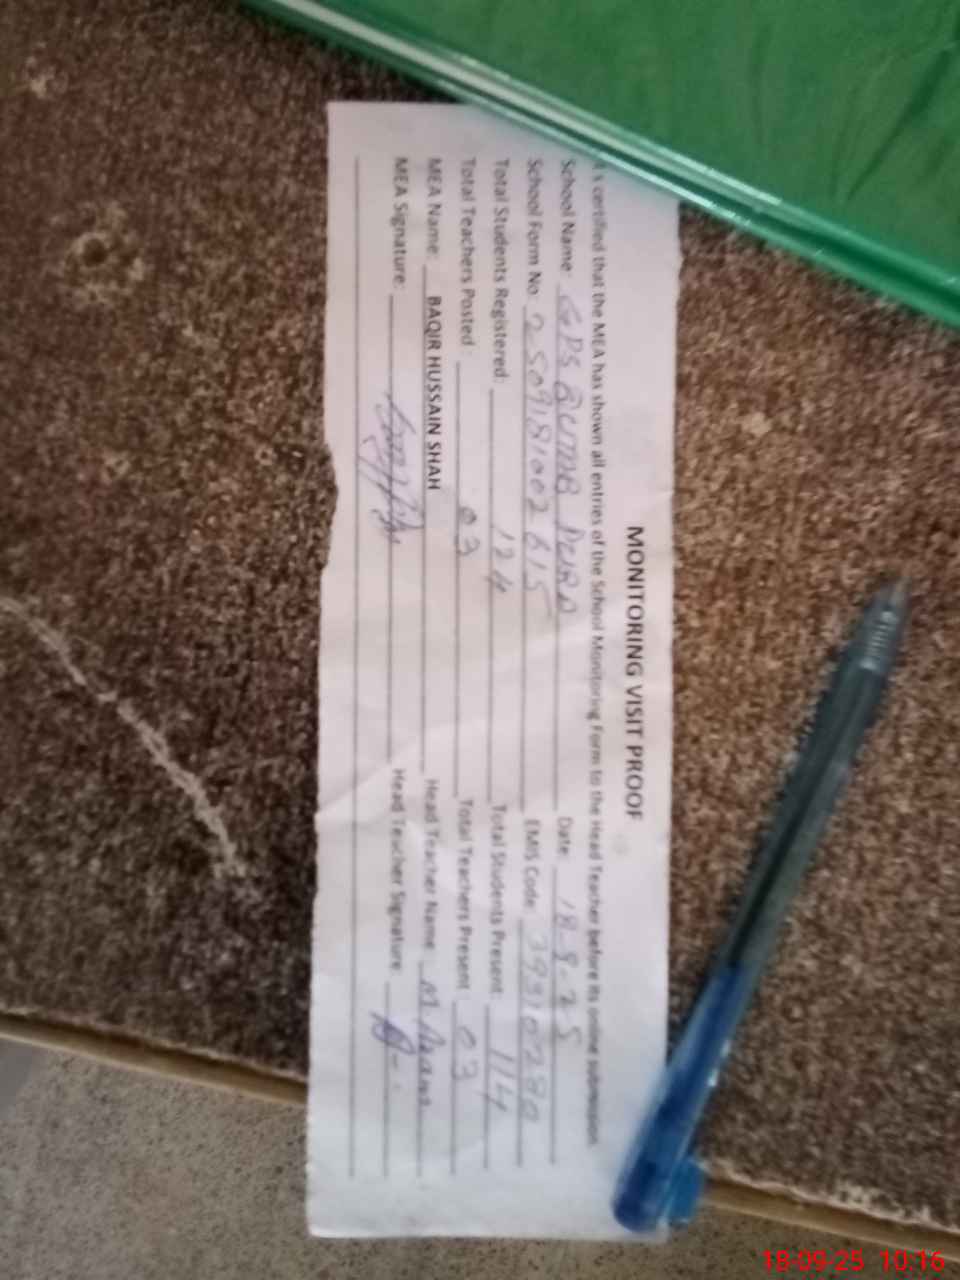 MONITORING VISIT PROOF
s certified that the MEA has shown all entries of the School Monitoring Form to the Head Teacher before its online submission
School Name: GPS QUTAB PURA Date:
School Form No: EMIS Code:
Total Students Registered: 124 Total Students Present: 114
Total Teachers Posted: 03 Total Teachers Present: 03
MEA Name: BAQIR HUSSAIN SHAH Head Teacher Name:
MEA Signature: Head Teacher Signature:
18-09-25 10:16